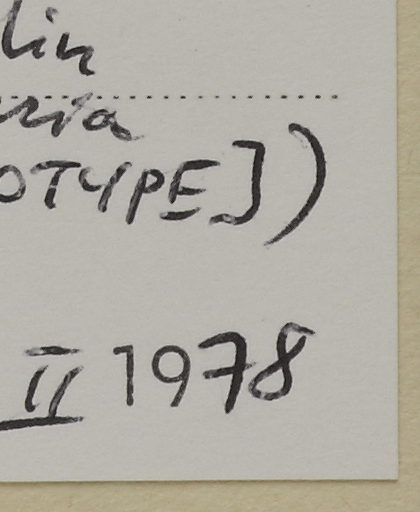 lin
ria
OTYPE])
II 1978